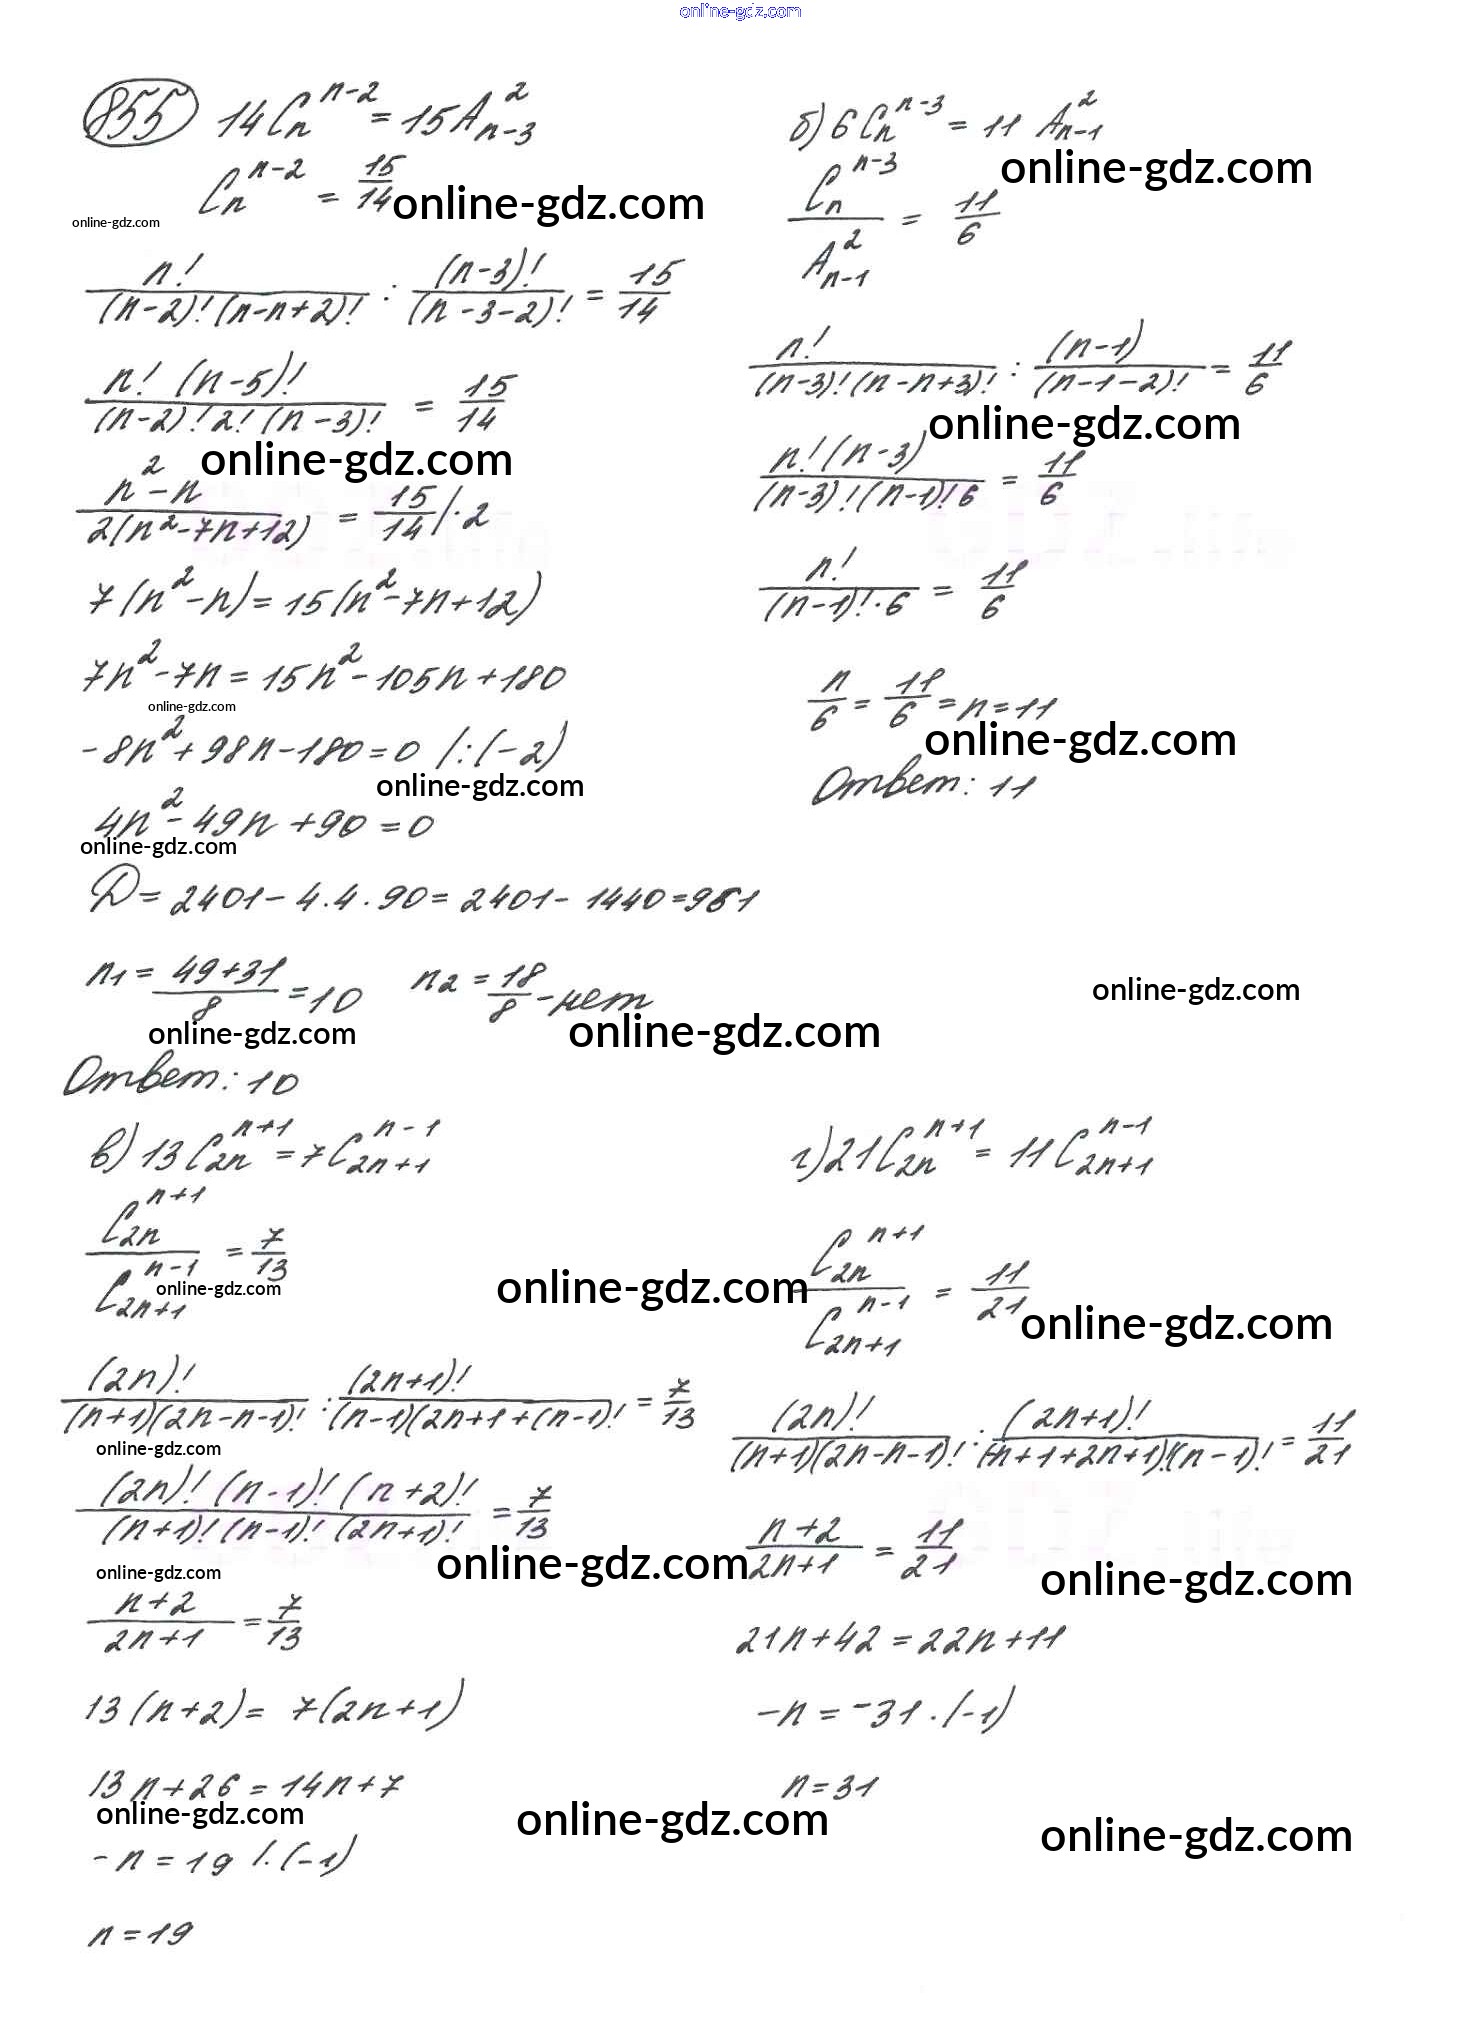 online-gdz.com
855 14C_n^{n-2} = 15A_{n-3}^2
C_n^{n-2} = 15/14
online-gdz.com
online-gdz.com
n!/((n-2)!(n-n+2)!) : (n-3)!/((n-3-2)!) = 15/14
n!(n-5)!/((n-2)!2!(n-3)!) = 15/14
online-gdz.com
n^2-n/(2(n^2-7n+12)) = 15/14 /·2
7(n^2-n)=15(n^2-7n+12)
7n^2-7n=15n^2-105n+180
online-gdz.com
-8n^2+98n-180=0 /:(-2)
online-gdz.com
4n^2-49n+90=0
online-gdz.com
D=2401-4.4.90=2401-1440=961
n1=(49+31)/8=10 n2=18/8-нет
online-gdz.com
online-gdz.com
Ответ: 10
б) 6C_n^{n-3} = 11 A_{n-1}^2
online-gdz.com
C_n^{n-3}/A_{n-1}^2 = 11/6
n!/((n-3)!(n-n+3)!) : (n-1)/((n-1-2)!) = 11/6
online-gdz.com
n!(n-3)/((n-3)!(n-1)!6) = 11/6
n!/((n-1)!·6) = 11/6
n/6=11/6=n=11
online-gdz.com
Ответ: 11
online-gdz.com
в) 13C_{2n}^{n+1}=7C_{2n+1}^{n-1}
C_{2n}^{n+1}/C_{2n+1}^{n-1} = 7/13
online-gdz.com
online-gdz.com
(2n)!/((n+1)(2n-n-1)!) : (2n+1)!/((n-1)(2n+1+(n-1)!) = 7/13
online-gdz.com
(2n)!(n-1)!(n+2)!/((n+1)!(n-1)!(2n+1)!) = 7/13
online-gdz.com
online-gdz.com
n+2/2n+1 = 7/13
13(n+2)= 7(2n+1)
13n+26=14n+7
online-gdz.com
online-gdz.com
-n=19 /.(-1)
n=19
г) 21C_{2n}^{n+1} = 11C_{2n+1}^{n-1}
C_{2n}^{n+1}/C_{2n+1}^{n-1} = 11/21
online-gdz.com
(2n)!/((n+1)(2n-n-1)!) : (2n+1)!/((-n+1+2n+1)!(n-1)!) = 11/21
n+2/2n+1 = 11/21
online-gdz.com
21n+42=22n+11
-n=-31.(-1)
n=31
online-gdz.com